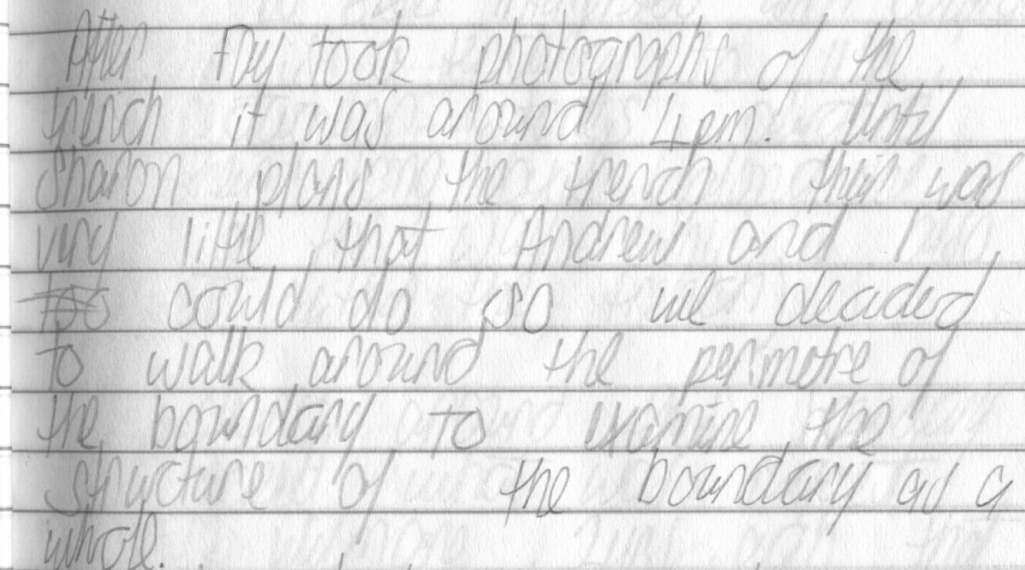 After Fly took photographs of the
trench it was around 4pm. Until
Sharon plans the trench their was
very little that Andrew and I
could do so we decided
to walk around the perimetre of
the boundary to examine the
structure of the boundary as a
whole.